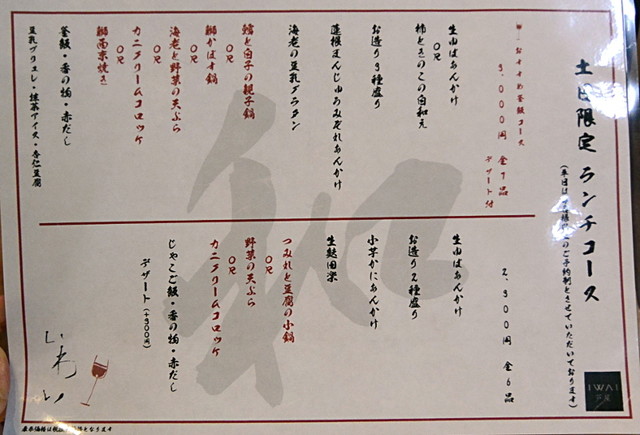 土日限定 ランチコース
のご予約制とさせていただいております)
おすすめ釜飯コース
3,000円 全7品
デザート付
生ゆばあんかけ
OR
柿ときのこの白和え
お造り3種盛り
蓮根まんじゅうみぞれあんかけ
海老の豆乳グラタン
鱈と白子の親子鍋
OR
鰤かぱす鍋
OR
海老と野菜の天ぷら
OR
カニクリームコロッケ
OR
鰤西京焼き
釜飯・香の物・赤だし
豆乳ブリュレ・抹茶アイス・杏仁豆腐
2,300円 全6品
生ゆばあんかけ
お造り2種盛り
小芋かにあんかけ
生麩田楽
つみれと豆腐の小鍋
OR
野菜の天ぷら
OR
カニクリームコロッケ
じゃこご飯・香の物・赤だし
デザート(+300円)
和
いわい
IWAI